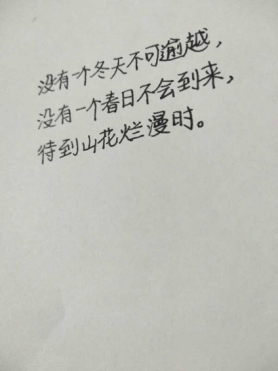 没有一个冬天不可逾越，
没有一个春日不会到来，
待到山花烂漫时。